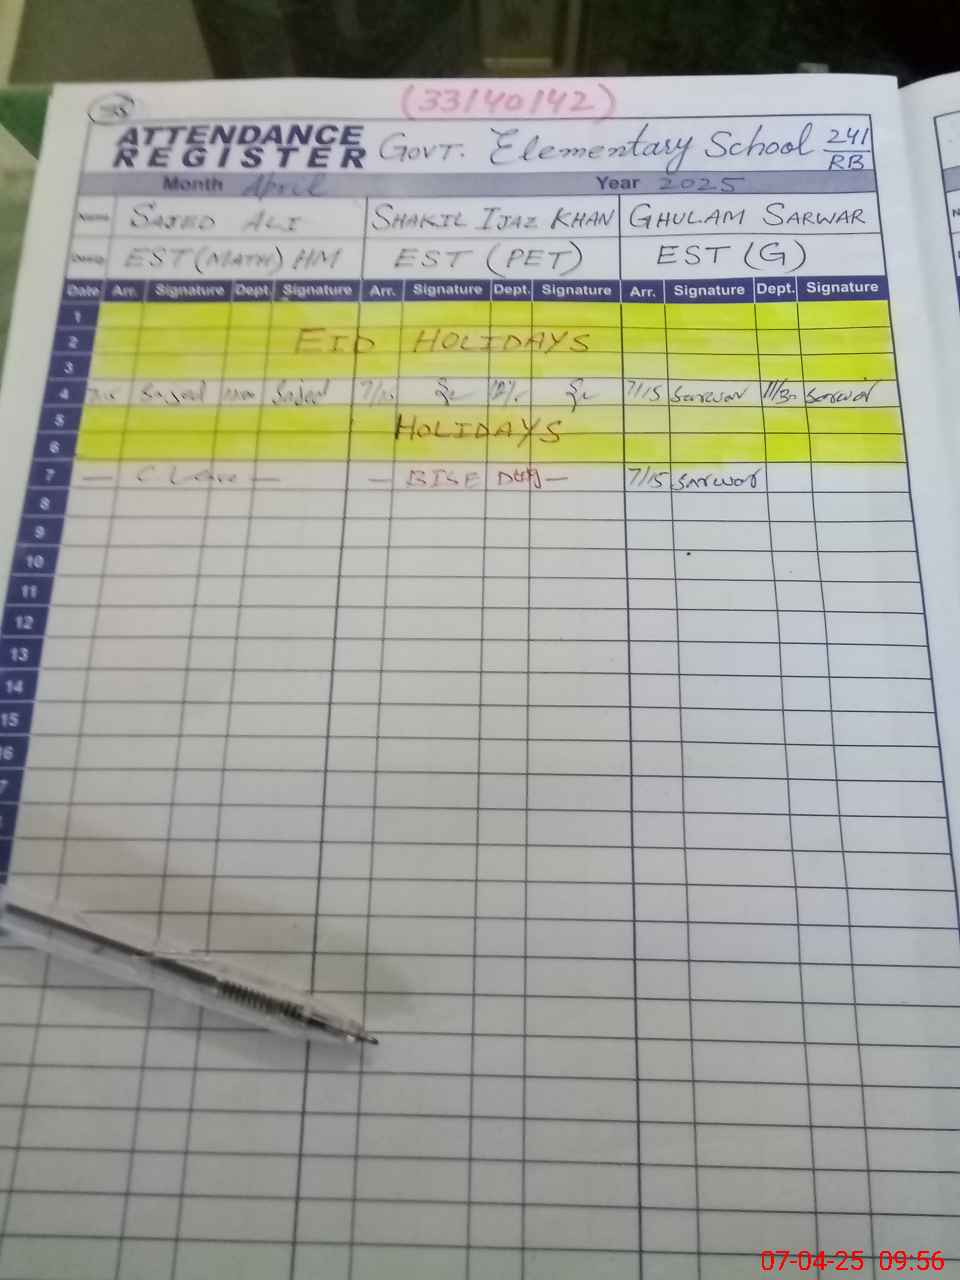 (33140142)
ATTENDANCE REGISTER Govt. Elementary School 241/RB
Month April Year 2025
Name SAJED ALI SHAKIL IJAZ KHAN GHULAM SARWAR
Desig EST (MATH) HM EST (PET) EST (G)
Date Arr. Signature Dept. Signature Arr. Signature Dept. Signature Arr. Signature Dept. Signature
1
2 EID HOLIDAYS
3
4 Sajed Sajed 7/15 Sarwar 11/30 Sarwar
5 HOLIDAYS
6
7 — C Leave — — BISE Duty — 7/15 Sarwar
8
9
10
11
12
13
14
15
16
7
07-04-25 09:56